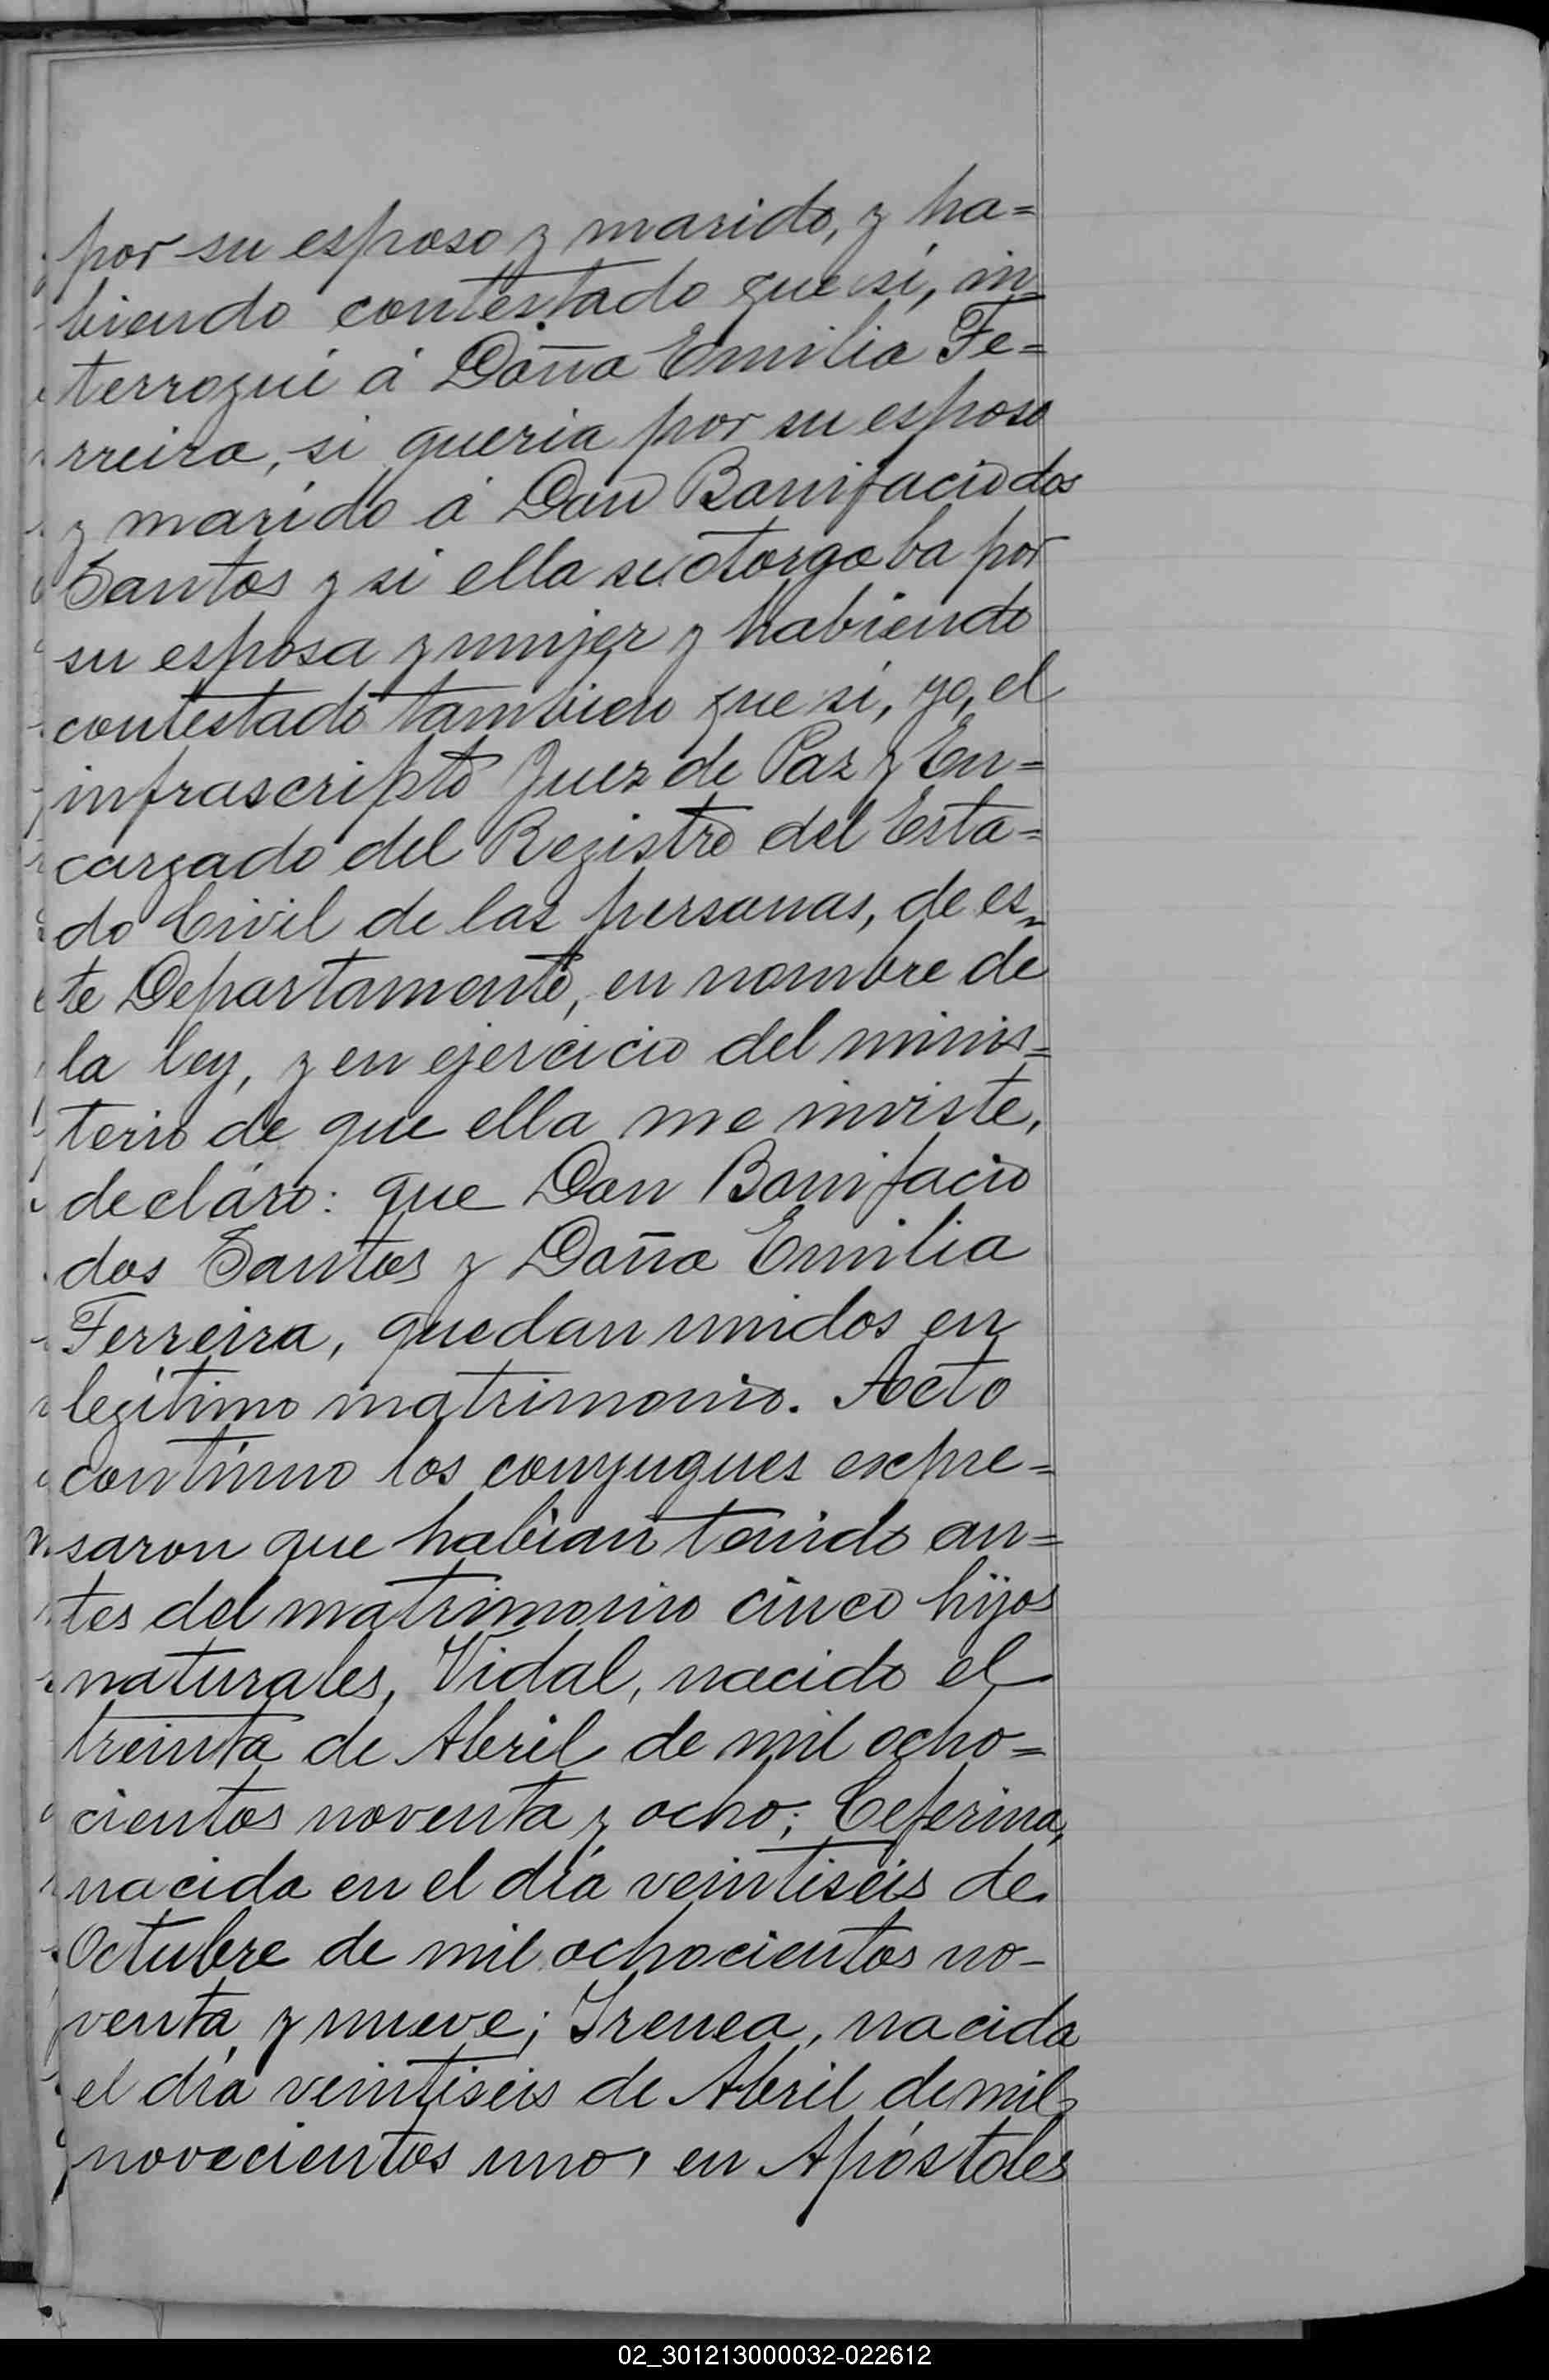 por su esposo y marido, y ha=
biendo contestado que si, in
terrogué á Doña Emilia Fe=
rreira, si queria por su esposo
y marido á Don Bonifacio dos
Santos y si ella se otorgaba por
su esposa y mujer y habiendo
contestado tambien que si, yo, el
infrascripto Juez de Paz y En=
cargado del Registro del Esta=
do Civil de las personas, de es=
te Departamento, en nombre de
la ley, y en ejercicio del minis=
terio de que ella me inviste,
decláro: que Don Bonifacio
dos Santos y Doña Emilia
Ferreira, quedan unidos en
legítimo matrimonio. Acto
contínuo los conyugues expre=
saron que habían tenido an=
tes del matrimonio cinco hijos
naturales, Vidal, nacido el
treinta de Abril de mil ocho=
cientos noventa y ocho; Ceferina,
nacida en el día veintiseis de
Octubre de mil ochocientos no-
venta y nueve; Irenea, nacida
el día veintiseis de Abril de mil
novecientos uno, en Apóstoles
02_301213000032-022612